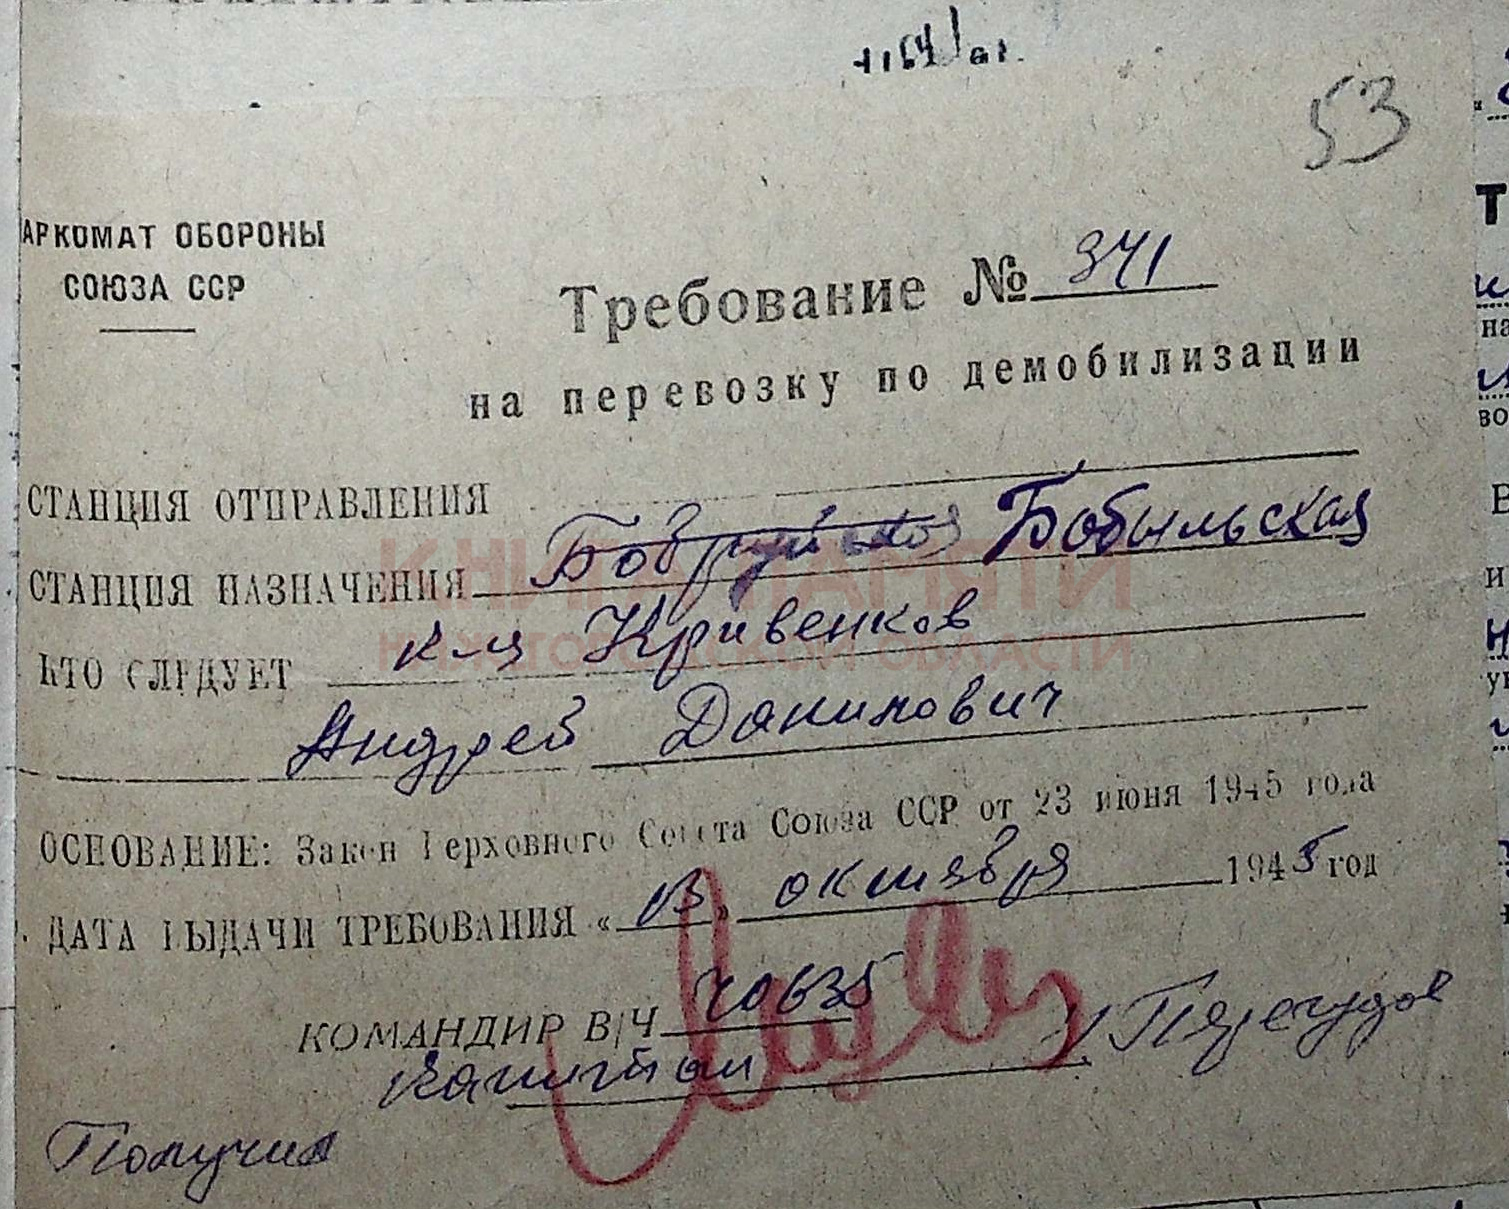 53
АРКОМАТ ОБОРОНЫ
СОЮЗА ССР
Требование № 341
на перевозку по демобилизации
СТАНЦИЯ ОТПРАВЛЕНИЯ
СТАНЦИЯ НАЗНАЧЕНИЯ Бобыльская
КТО СЛЕДУЕТ к-ц Кривенков
Андрей Данилович
ОСНОВАНИЕ: Закон Верховного Совета Союза ССР от 23 июня 1945 года
ДАТА ВЫДАЧИ ТРЕБОВАНИЯ « 13 » октября 1945 год
КОМАНДИР В/Ч 70635
Капитан / Перегудов
Получил
КНИГА ПАМЯТИ
НИЖЕГОРОДСКОЙ ОБЛАСТИ